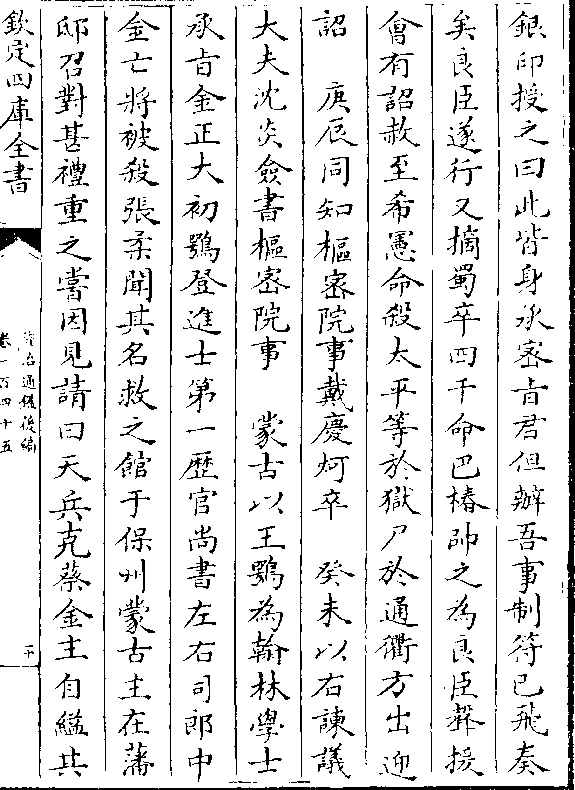 銀印授之曰此皆身承宻㫖君但辦吾事制符已飛奏
矣良臣遂行又摘蜀卒四千命巴椿帥之為良臣聲援
會有詔赦至希憲命殺太平等於獄尸於通衢方出迎
詔　庚辰同知樞宻院事戴慶炣卒　癸未以右諫議
大夫沈炎僉書樞宻院事　蒙古以王鶚為翰林學士
承㫖金正大初鶚登進士第一歴官尚書左右司郎中
金亡將被殺張柔聞其名救之館于保州蒙古主在藩
邸召對甚禮重之嘗因見請曰天兵克蔡金主自縊其
欽定四庫全書
資治通鑑後編
卷一百四十五